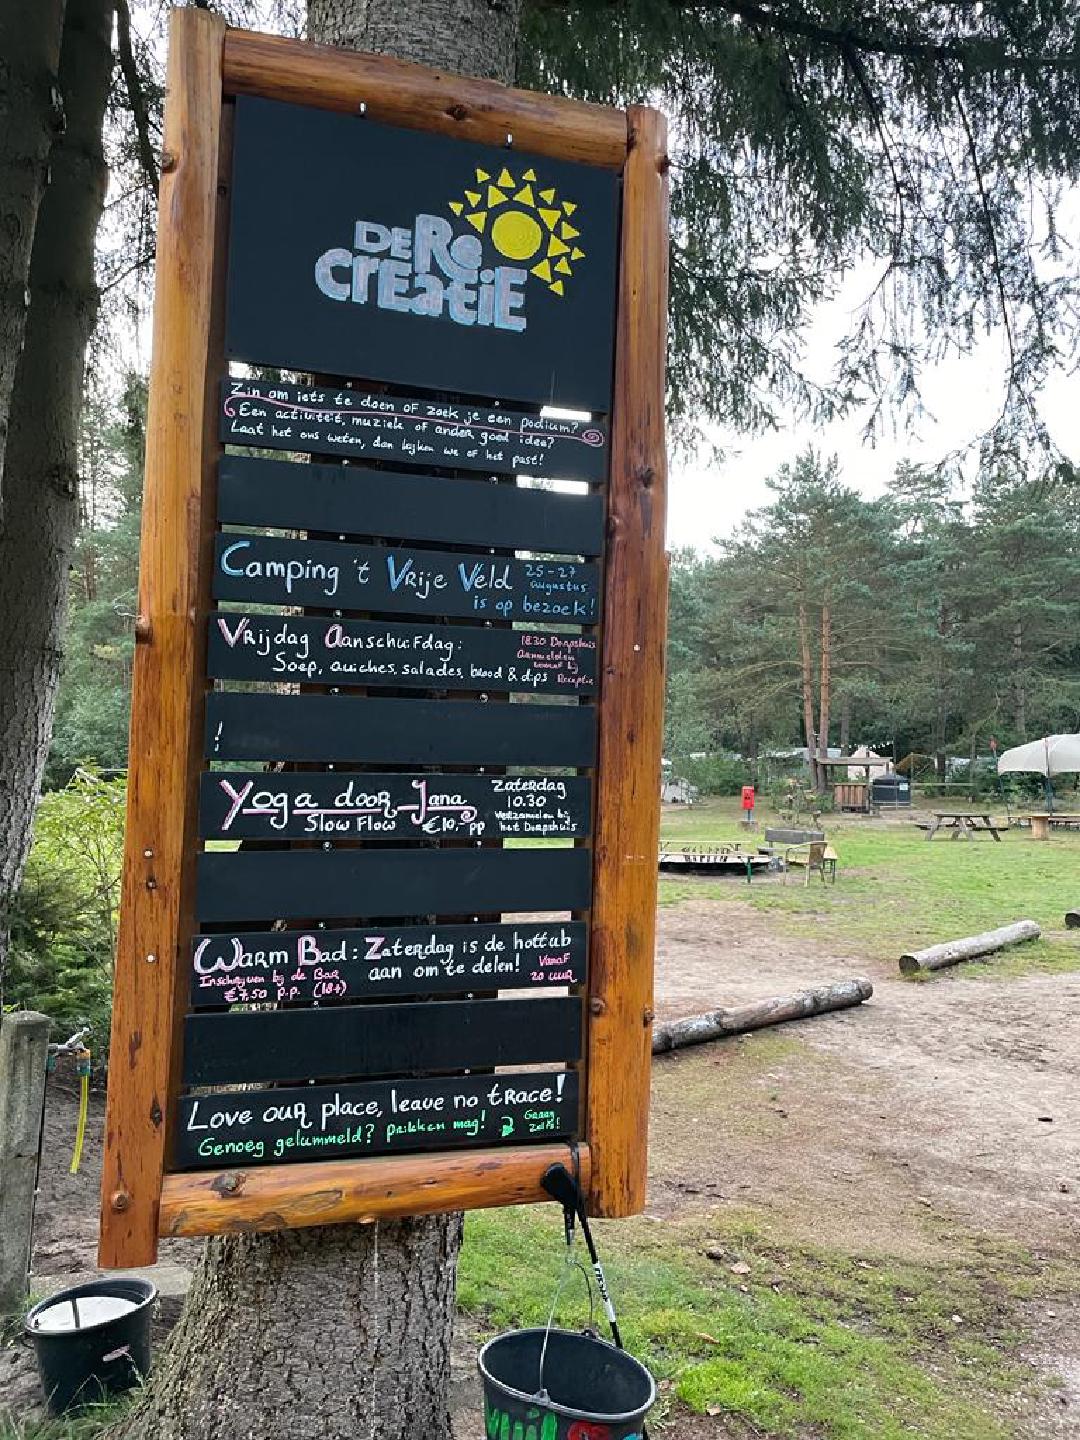 DE Re
CrEatiE
Zin om iets te doen of zoek je een podium?
Een activiteit, muziek of ander goed idee?
Laat het ons weten, dan kijken we of het past!
Camping 't Vrije Veld 25-27
augustus
is op bezoek!
Vrijdag Aanschuifdag:
Soep, quiches, salades, brood & dips
18.30 Dorpshuis
Aanmelden
vooraf bij
Receptie
!
Yoga door Jana
Slow Flow €10,- pp
Zaterdag
10.30
Verzamelen bij
het Dorpshuis
Warm Bad: Zaterdag is de hottub
aan om te delen!
Vanaf
20 uur
Inschrijven bij de Bar
€7,50 p.p. (18+)
Love our place, leave no trace!
Genoeg gelummeld? prikken mag!